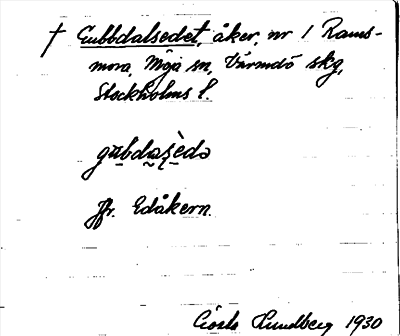 † Gubbdalsedet, åker, nr 1 Rams-
mora, Möja sn, Värmdö skg,
Stockholms l.
gubdaṣèdə
Jfr. Edåkern.
Gösta Lundberg 1930